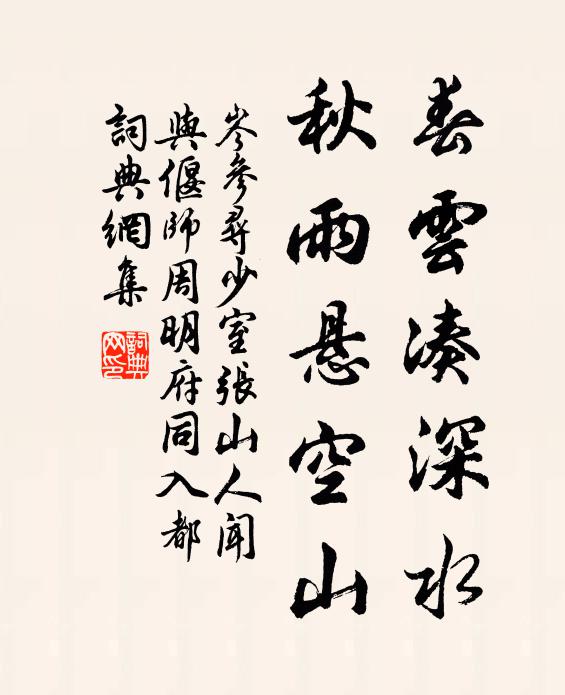 春雲湊深水
秋雨悬空山
岑參尋少室張山人聞
與偃師周明府同入都
詞典網集
詞典
网印